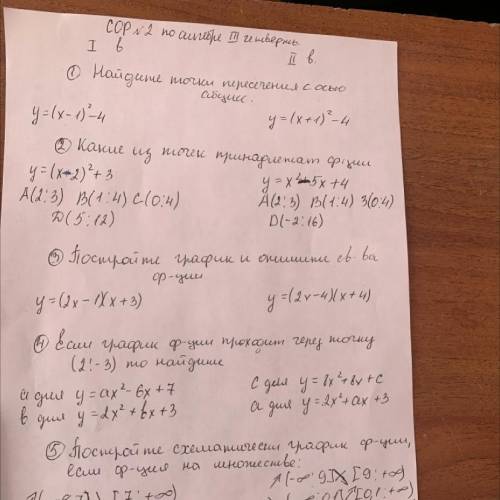 СОР №2 по алгебре III четверть
I в
II в.
① Найдите точки пересечения с осью
абцисс.
y=(x-1)²-4
y=(x+1)²-4
② Какие из точек принадлежат ф-ции
y=(x-2)²+3
y=x²-5x+4
A(2;3) B(1;4) C(0;4)
A(2;3) B(1;4) З(0;4)
D(5;12)
D(-2;16)
③ Постройте график и опишите св-ва
ф-ции
y=(2x-1)(x+3)
y=(2x-4)(x+4)
④ Если график ф-ции проходит через точку
(2;-3) то найдите
a для y=ax²-6x+7
c для y=
в для y=2x²+bx+3
a для y=2x²+ax+3
⑤ Постройте схематически график ф-ции,
если ф-ция на множестве:
↗(-∞;9] ↘ [9;+∞)
[7;+∞)